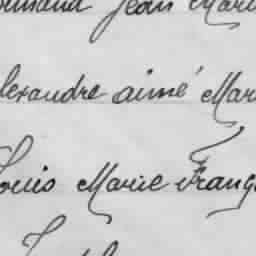 Jean Mari
lexandre aimé Mar
Louis Marie Franç